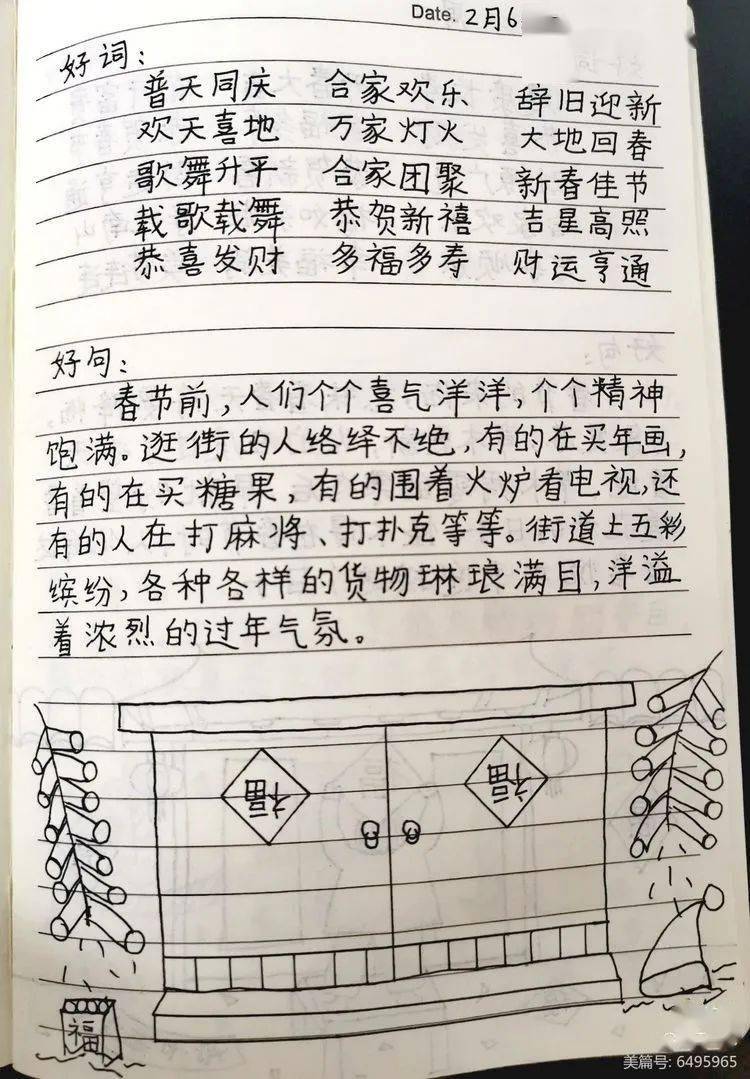 Date. 2月6
好词：
普天同庆 合家欢乐 辞旧迎新
欢天喜地 万家灯火 大地回春
歌舞升平 合家团聚 新春佳节
载歌载舞 恭贺新禧 吉星高照
恭喜发财 多福多寿 财运亨通
好句：
春节前，人们个个喜气洋洋，个个精神
饱满。逛街的人络绎不绝，有的在买年画，
有的在买糖果，有的围着火炉看电视，还
有的人在打麻将、打扑克等等。街道上五彩
缤纷，各种各样的货物琳琅满目，洋溢
着浓烈的过年气氛。
福 福
福
美篇号: 6495965